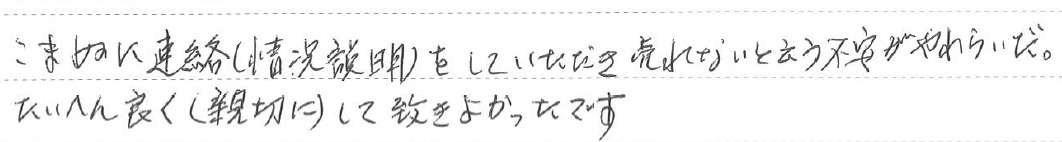 こまめに連絡(情況説明)をしていただき売れないと云う不安がやわらいだ。
たいへん良く(親切に)して致きよかったです